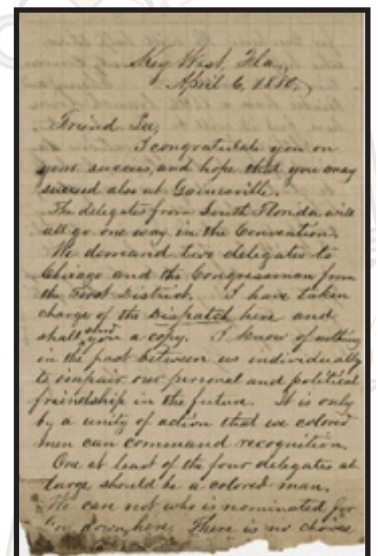 Key West, Fla.,
April 6, 1880.
Friend Lee,
I congratulate you on
your success, and hope that you may
succeed also at Gainesville.
The delegates from South Florida will
all go one way in the Convention.
We demand two delegates to
Chicago and the Congressman from
the First District. I have taken
charge of the Dispatch here and
shall send you a copy. I know of nothing
in the past between us individually
to impair our personal and political
friendship in the future. It is only
by a unity of action that we colored
men can command recognition.
One at least of the four delegates at
large should be a colored man.
We care not who is nominated for
Gov down here. There is no choice